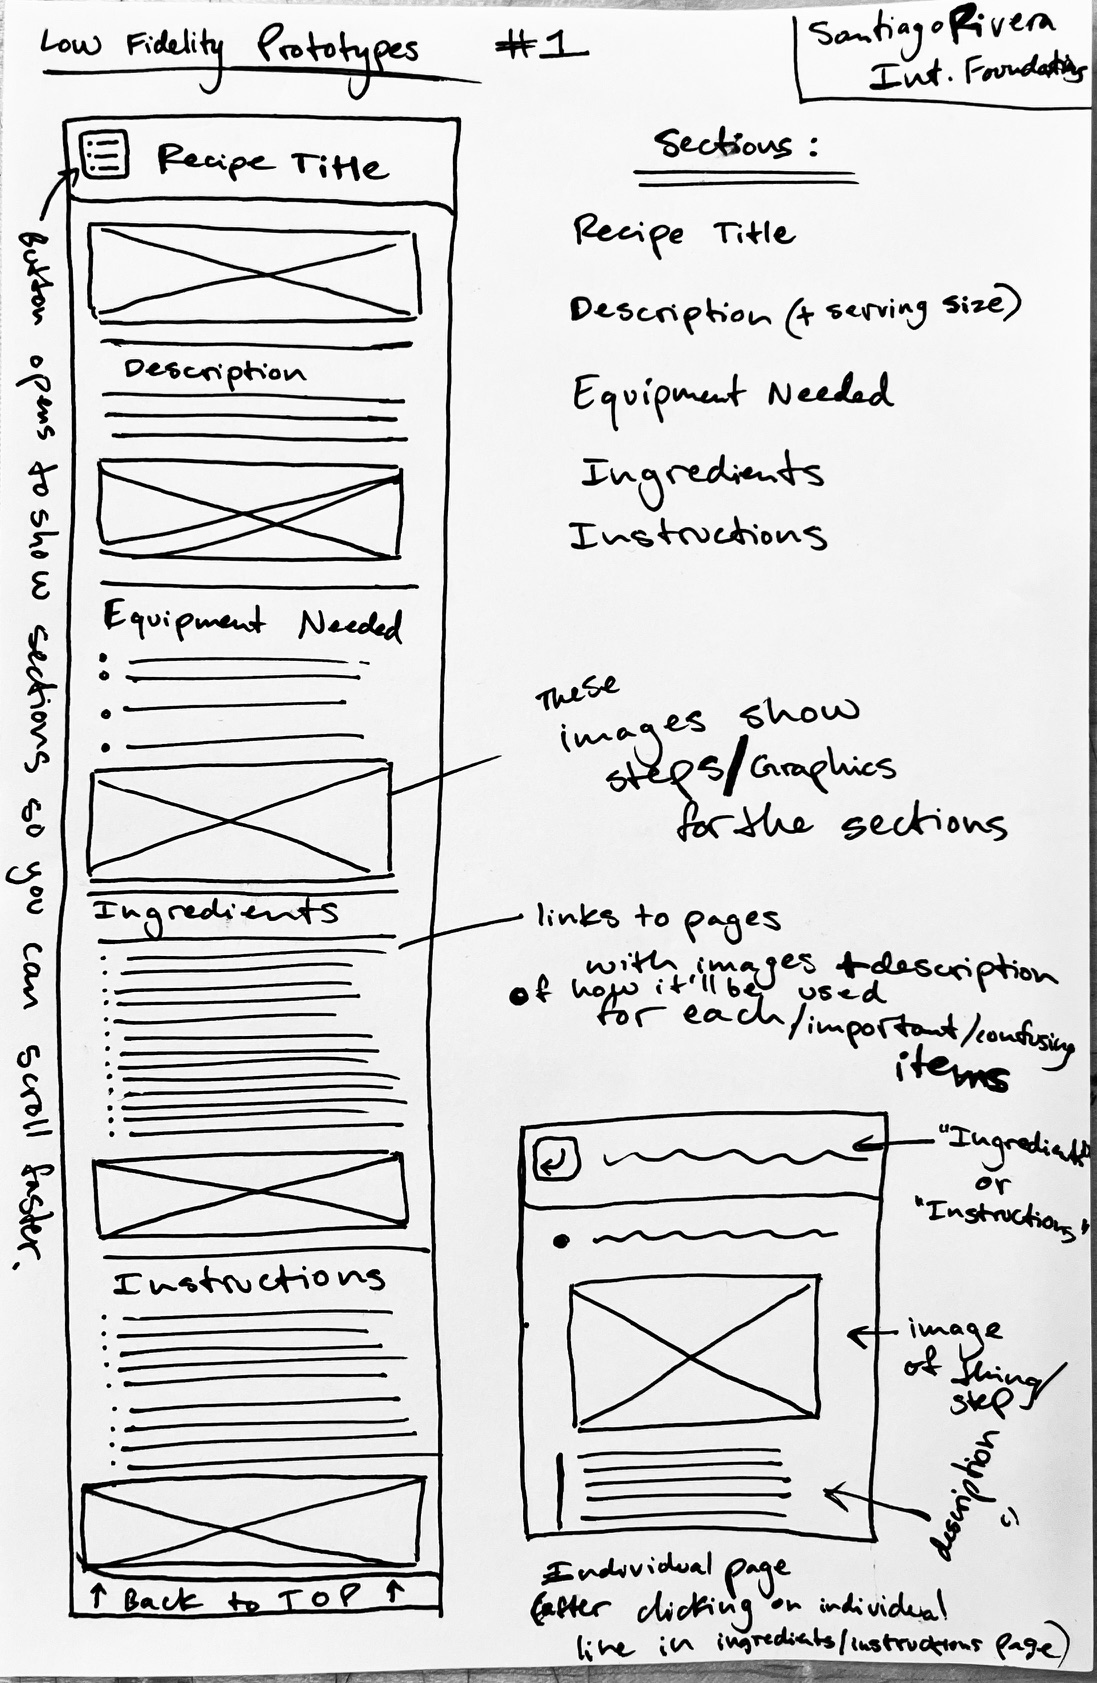 Low Fidelity Prototypes #1
Santiago Rivera
Int. Foundations
Recipe Title
Button opens to show sections so you can scroll faster.
Description
Equipment Needed
Ingredients
Instructions
↑ Back to TOP ↑
Sections:
Recipe Title
Description (+ serving size)
Equipment Needed
Ingredients
Instructions
These
images show
steps/Graphics
for the sections
links to pages
with images + description
of how it'll be used
for each/important/confusing
items
"Ingredients"
or
"Instructions"
image
of thing/
step
description
Individual page
(after clicking on individual
line in ingredients/instructions page)